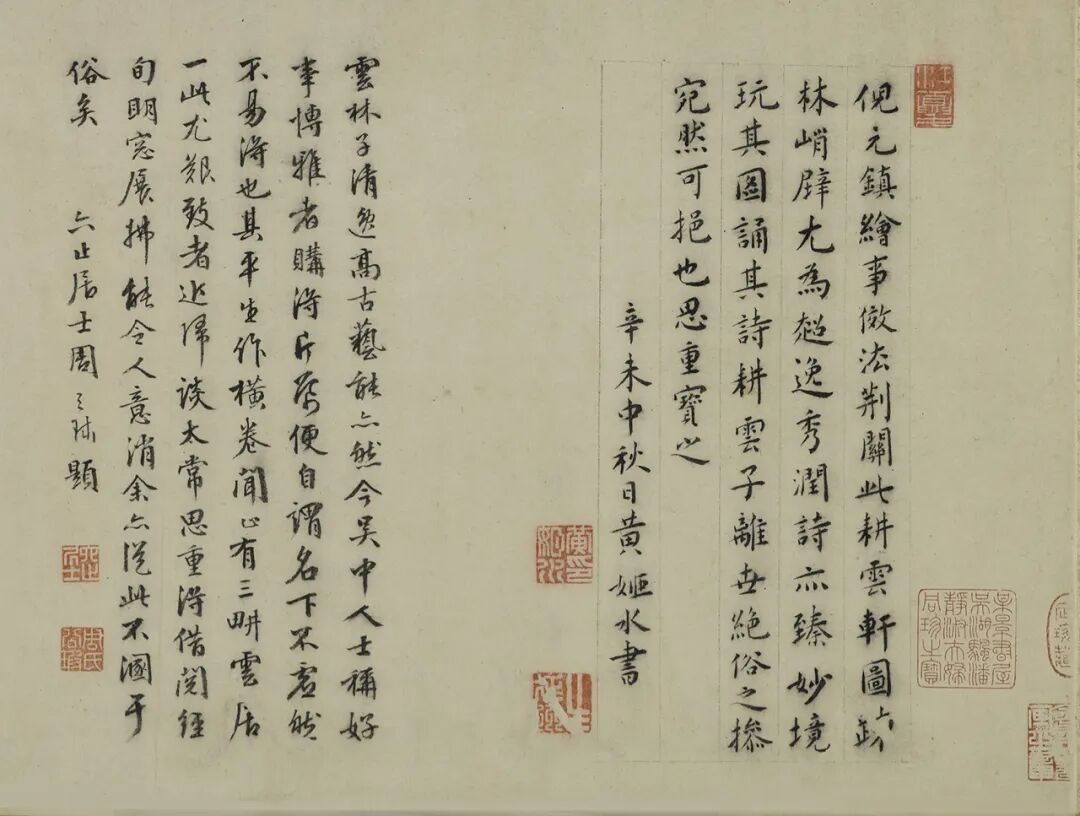 倪元鎮繪事倣法荊關此耕雲軒圖踈
林峭辟尤為超逸秀潤詩亦臻妙境
玩其圖誦其詩耕雲子離世絕俗之摻
宛然可挹也思重寶之
辛未中秋日黃姬水書
雲林子清逸高古藝能亦然今吳中人士稱好
事博雅者購得片紙便自謂名下不虛然
不易得也其平生作橫卷聞止有三畊雲居
一此尤艱致者近歸談太常思重得借閱經
旬明窓展拂能令人意消余亦從此不溷于
俗矣 六止居士周天球題
周氏公瑕